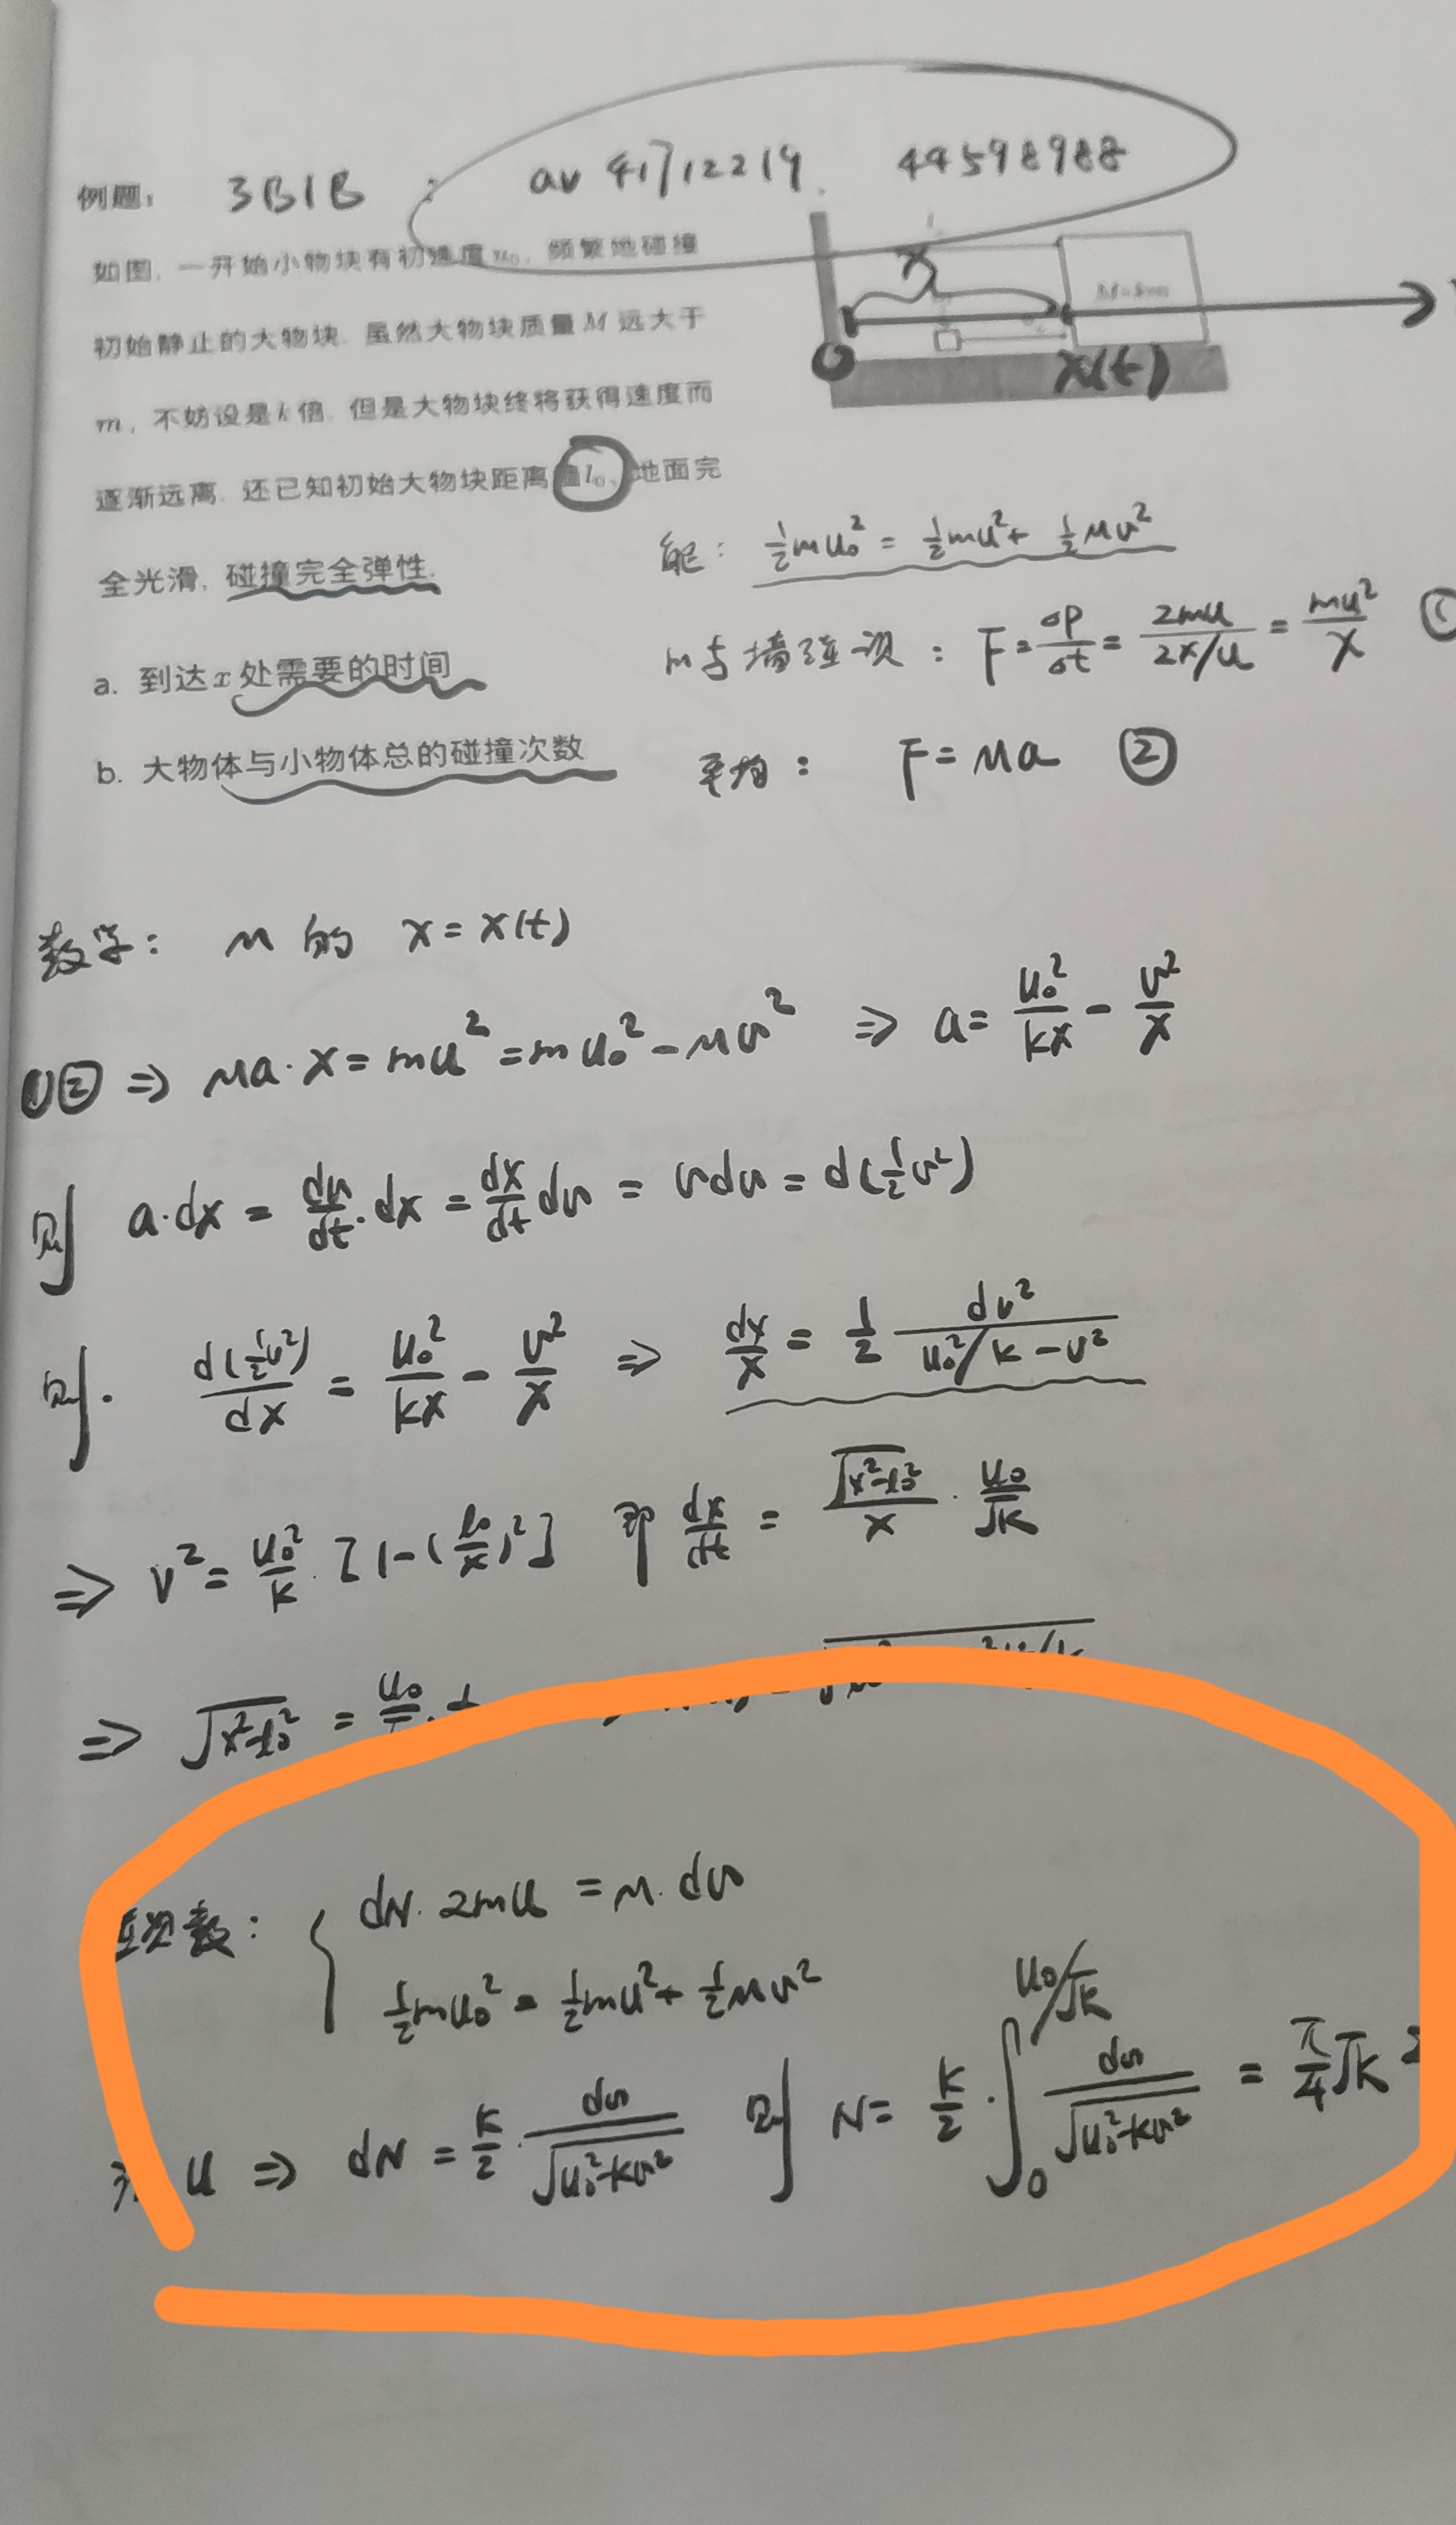 例题： 3B1B : av 41712219. 44598988
如图，一开始小物块有初速度u₀，频繁地碰撞
初始静止的大物块. 虽然大物块质量M远大于
m，不妨设是k倍. 但是大物块终将获得速度而
逐渐远离. 还已知初始大物块距离 l₀，地面完
全光滑，碰撞完全弹性.
a. 到达x处需要的时间
b. 大物体与小物体总的碰撞次数
x
O
x(t)
能： ½mu₀² = ½mu² + ½Mv²
m与墙碰一次： F = Δp/Δt = 2mu/(2x/u) = mu²/x ①
平均： F = Ma ②
数学： M的 x = x(t)
①② ⇒ Ma·x = mu² = mu₀² - Mv² ⇒ a = u₀²/kx - v²/x
则 a·dx = dv/dt·dx = dx/dt dv = vdv = d(½v²)
则. d(½v²)/dx = u₀²/kx - v²/x ⇒ dx/x = ½ dv²/(u₀²/k - v²)
⇒ v² = u₀²/k · [1-(l₀/x)²] 即 dx/dt = √(x²-l₀²)/x · u₀/√k
⇒ √(x²-l₀²) = u₀
碰次数： { dN·2mu = M·dv
½mu₀² = ½mu² + ½Mv²
u ⇒ dN = k/2 · dv/√(u₀²-kv²) 则 N = k/2 · ∫₀^(u₀/√k) dv/√(u₀²-kv²) = π/4 √k